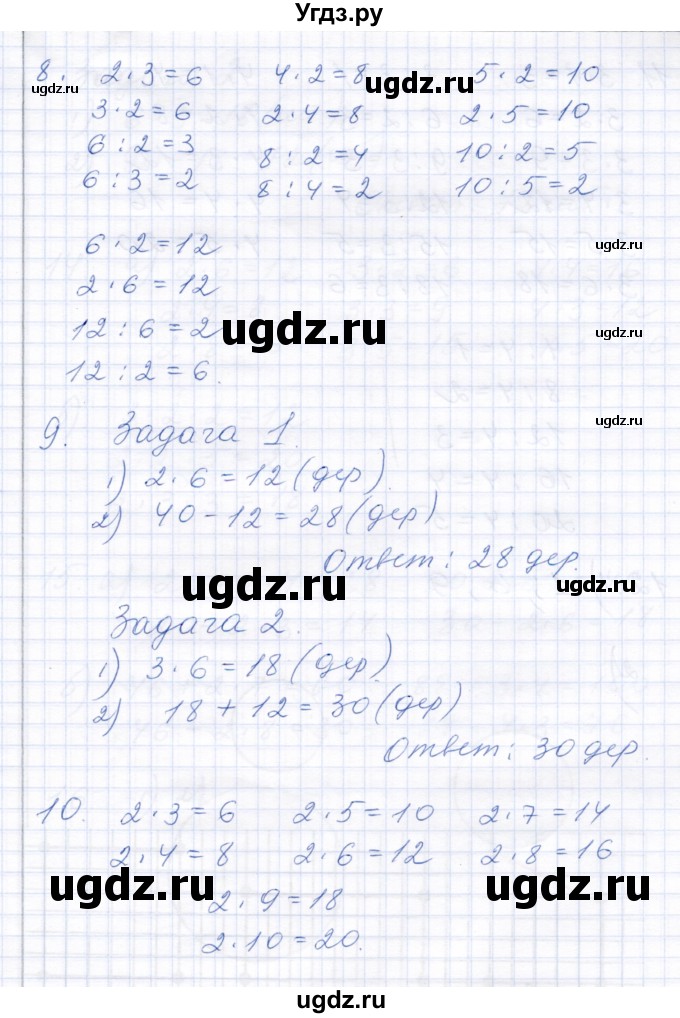 Угдз.ру
8. 2·3=6 4·2=8 5·2=10
ugdz.ru ugdz.ru ugdz.ru
3·2=6 2·4=8 2·5=10
6:2=3 8:2=4 10:2=5
6:3=2 8:4=2 10:5=2
6·2=12 ugdz.ru
2·6=12
12:6=2 ugdz.ru ugdz.ru
12:2=6.
9. Задача 1.
1) 2·6=12 (дер).
2) 40-12=28 (дер)
Ответ: 28 дер.
ugdz.ru ugdz.ru
Задача 2.
1) 3·6=18 (дер).
2) 18+12=30 (дер)
Ответ: 30 дер.
10. 2·3=6 2·5=10 2·7=14
2·4=8 2·6=12 2·8=16
ugdz.ru ugdz.ru
2·9=18
2·10=20.
ugdz.ru